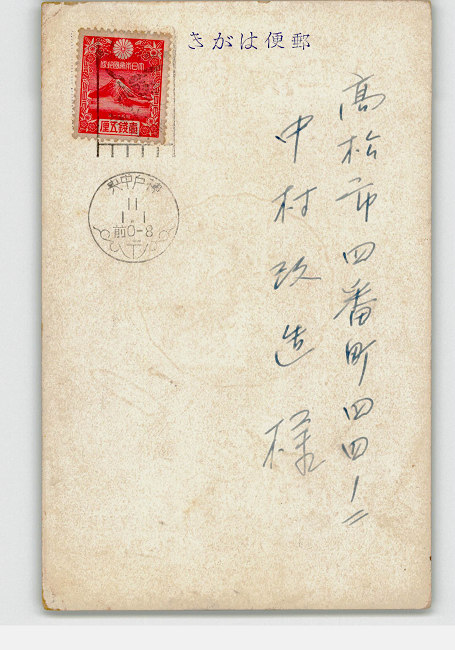 郵便はがき
高松市四番町四四ノ二
中村改造様
大日本帝國郵便
壹錢五厘
神戸中央
11
1.1
前0-8